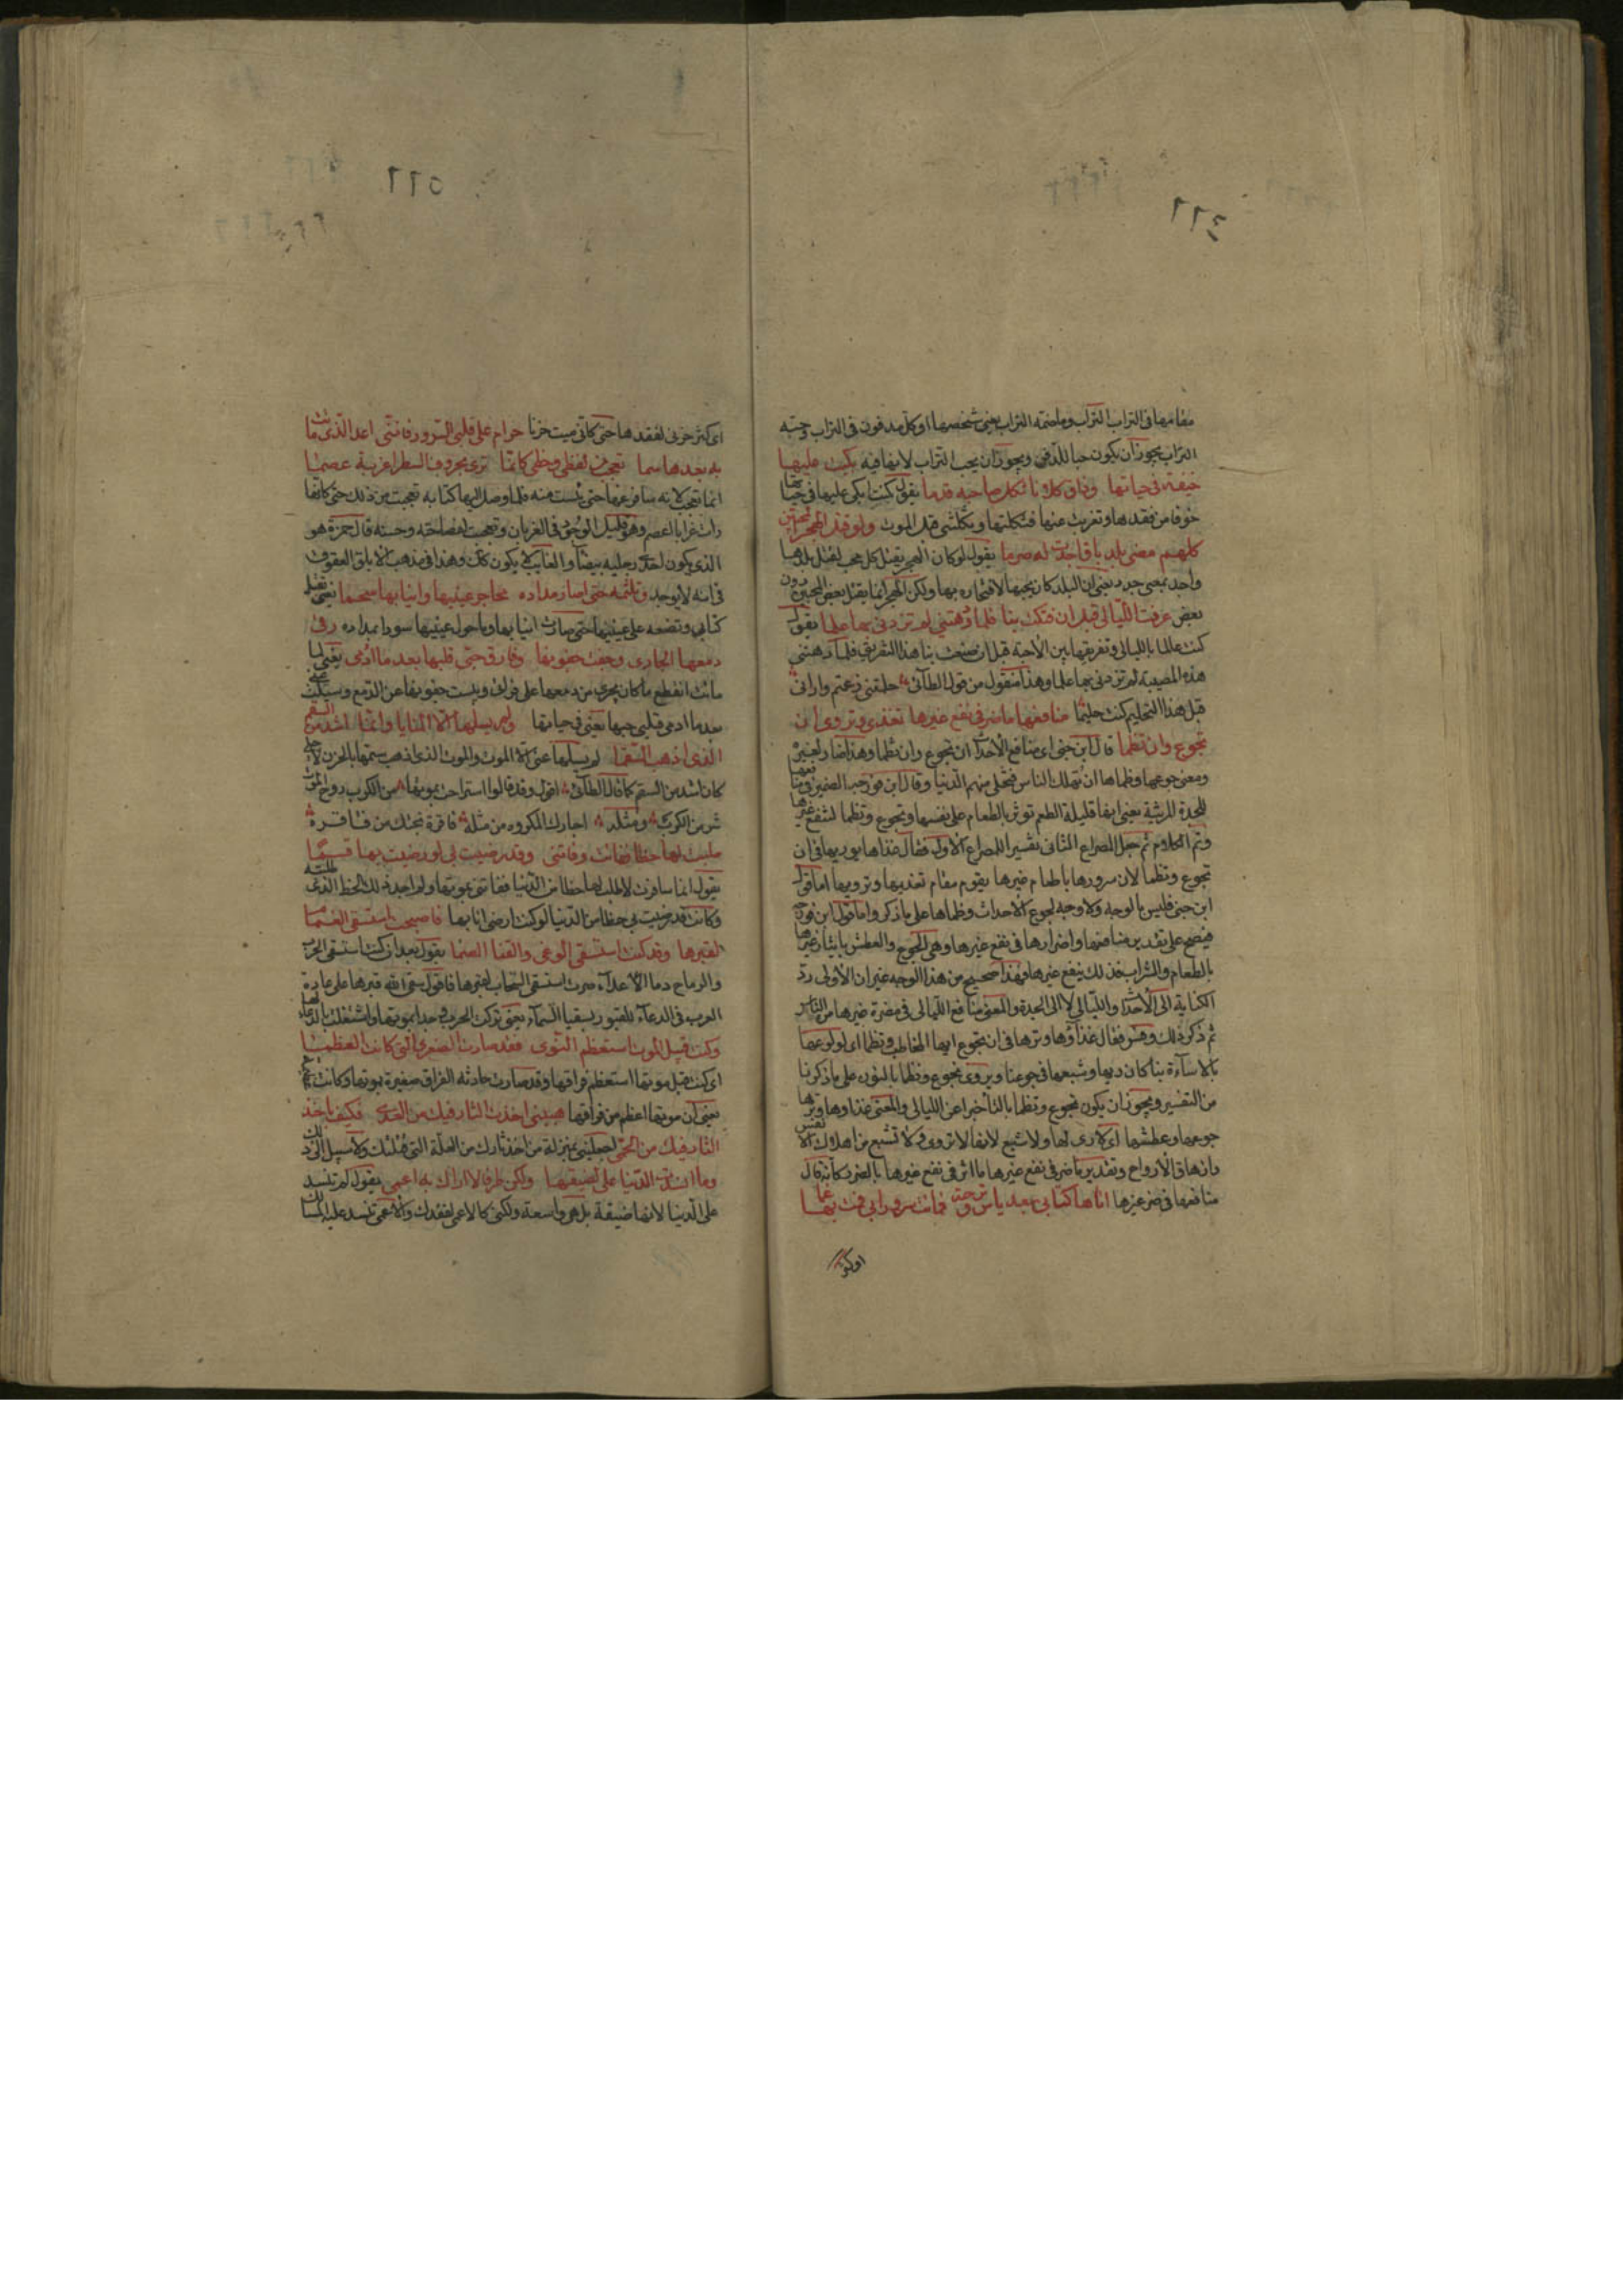 ٤٦٦
مقامها فى التراب التراب وما ضمته التراب يعنى شخصها او كل مدفون فى التراب وحبّه
التراب يجوز ان يكون حبا للدفين ويجوز ان يحب التراب لانها فيه بكيت عليها
خيفة فى حياتها وذاق كلانا ثكل صاحبه قدما يقول كنت ابكى عليها فى حياتها
خوفا من فقدها وتغربت عنها فثكلتها وثكلتنى قبل الموت ولو قتل الهجر المحبين
كلهم مضى بلد باق اجدت له صرما يقول لو كان الهجر يقتل كل محب لقتل بلدها
واجد بمعنى جدد يعنى ان البلد كان يحبها لافتخاره بها ولكن الهجر انما يقتل بعض المحبين دون
بعض عرفت الليالى قبل ان فتكت بنا فلما دهتنى لم تزدنى بها علما يقول
كنت عالما بالليالى وتفريقها بين الاحبة قبل ان صنعت بنا هذا التفريق فلما دهتنى
هذه المصيبة لم تزدنى بها علما وهذا منقول من قول الطائى حلمتنى زعمتم وارانى
قبل هذا التحليم كنت حليما منافعها ما ضر فى نفع غيرها تغذى وتروى ان
تجوع وان تظما قال ابن جنى اى منافع الاحداث ان تجوع وان تظما وهذا ضار لغيرها
ومعنى جوعها وظماها ان تهلك الناس فتخلى منهم الدنيا وقال ابن فورجه الضمير فى منافعها
للجدة المرثية يعنى انها قليلة الطعم توثر بالطعام على نفسها وتجوع وتظما لتنفع غيرها
وتم الكلام ثم جعل المصراع الثانى تفسيرا للمصراع الاول فقال غذاها وريها فى ان
تجوع وتظما لان سرورها باطعام غيرها يقوم مقام تغذيها وترويها اما قول
ابن جنى فليس بالوجه ولا وجه لجوع الاحداث وظماها على ما ذكر واما قول ابن فورجه
فيصح على تقدير منافعها واضرارها فى نفع غيرها وهى الجوع والعطش بايثار غيرها
بالطعام والشراب فذلك ينفع غيرها وهذا صحيح من هذا الوجه غير ان الاولى رد
الكناية الى الاحداث والليالى لا الى الجدة والمعنى منافع الليالى فى مضرة غيرها من الناس
ثم ذكر ذلك وفسر فقال غذاؤها وريها فى ان تجوع ايها المخاطب وتظما اى لولوعها
بالاساءة بنا كان ريها وشبعها فى جوعنا ويروى نجوع ونظما بالنون على ما ذكرنا
من التفسير ويجوز ان يكون تجوع وتظما بالتا خبرا عن الليالى والمعنى غذاوها وريها
جوعها وعطشها اى لا رى لها ولا شبع لانها لا تروى ولا تشبع من اهلاك الانفس
وازهاق الارواح وتقدير ما ضر فى نفع غيرها ما اثر فى نفع غيرها بالضر كانه قال
منافعها فى ضر غيرها اتاها كتابى بعد ياس وترحة فماتت سرورا بى فمت بها غما
٥٦٦
اى كثر حزنى لفقدها حتى كانى ميت حزنا حرام على قلبى السرور فاننى اعد الذى ماتت
به بعدها سما تعجب من لفظى وخطى كانما ترى بحروف السطر اغربة عصما
انما تعجب لانه سافر عنها حتى يئست منه فلما وصل اليها كتابه تعجبت من ذلك حتى كانها
رات غرابا اعصم وهو قليل الوجود فى الغربان وتعجبت لفصاحته وحسنه قال حمزة هو
الذى يكون احدى رجليه بيضا والغالب لا يكون كذلك وهذا فى مذهب الابلق العقوق
فى انه لا يوجد وتلثمه حتى اصار مداده محاجر عينيها وانيابها سحما يعنى تقبل
كتابى وتضعه على عينيها حتى صارت انيابها وما حول عينيها سودا بمداده رقى
دمعها الجارى وجفت جفونها وفارق حبى قلبها بعد ما ادمى يعنى لما
ماتت انقطع ما كان يجرى من دمعها على فراقى ويبست جفونها عن الدمع وسليت عنى
بعد ما ادمى قلبى حبها يعنى فى حياتها ولم يسلها الا المنايا وانما اشد من السقم
الذى اذهب السقما لم يسلها عنى الا الموت والموت الذى اذهب سقمها بالحزن لاجلى
كان اشد من السقم كما قال الطائى اقول وقد قالوا استراحت بموتها من الكرب روح الموت
شر من الكرب ومثله اجارك المكروه من مثله فاقرة نجتك من فاقرة
طلبت لها حظا ففاتت وفاتنى وقد رضيت بى لو رضيت بها قسما
يقول انما سافرت لاطلب لها حظا من الدنيا ففاتتنى بموتها ولم اجد ذلك الحظ الذى طلبته
وكانت قد رضيت بى حظا من الدنيا لو كنت ارضى انا بها فاصبحت استسقى الغمام
لقبرها وقد كنت استسقى الوغى والقنا الصما يقول بعد ان كنت استسقى الحرب
والرماح دما الاعداء صرت استسقى السحاب لقبرها فاقول سقى الله قبرها على عادة
العرب فى الدعاء للقبور بسقيا السماء يعنى تركت الحرب وجدا بموتها واشتغلت بالدعاء لها
وكنت قبيل الموت استعظم النوى فقد صارت الصغرى التى كانت العظمى
اى كنت قبل موتها استعظم فراقها وقد صارت حادثة الفراق صغيرة بموتها وكانت عظيمة
يعنى ان موتها اعظم من فراقها هبينى اخذت الثار فيك من العدى فكيف باخذ
الثار فيك من الحمى اجعلينى بمنزلة من اخذ ثارك من العلة التى قتلتك ولا سبيل الى ذلك
وما انسدت الدنيا على لضيقها ولكن طرفا لا اراك به اعمى يقول لم تنسد
على الدنيا لانها ضيقة بل هى واسعة ولكنى كالاعمى لفقدك والاعمى تنسد عليه المسالك